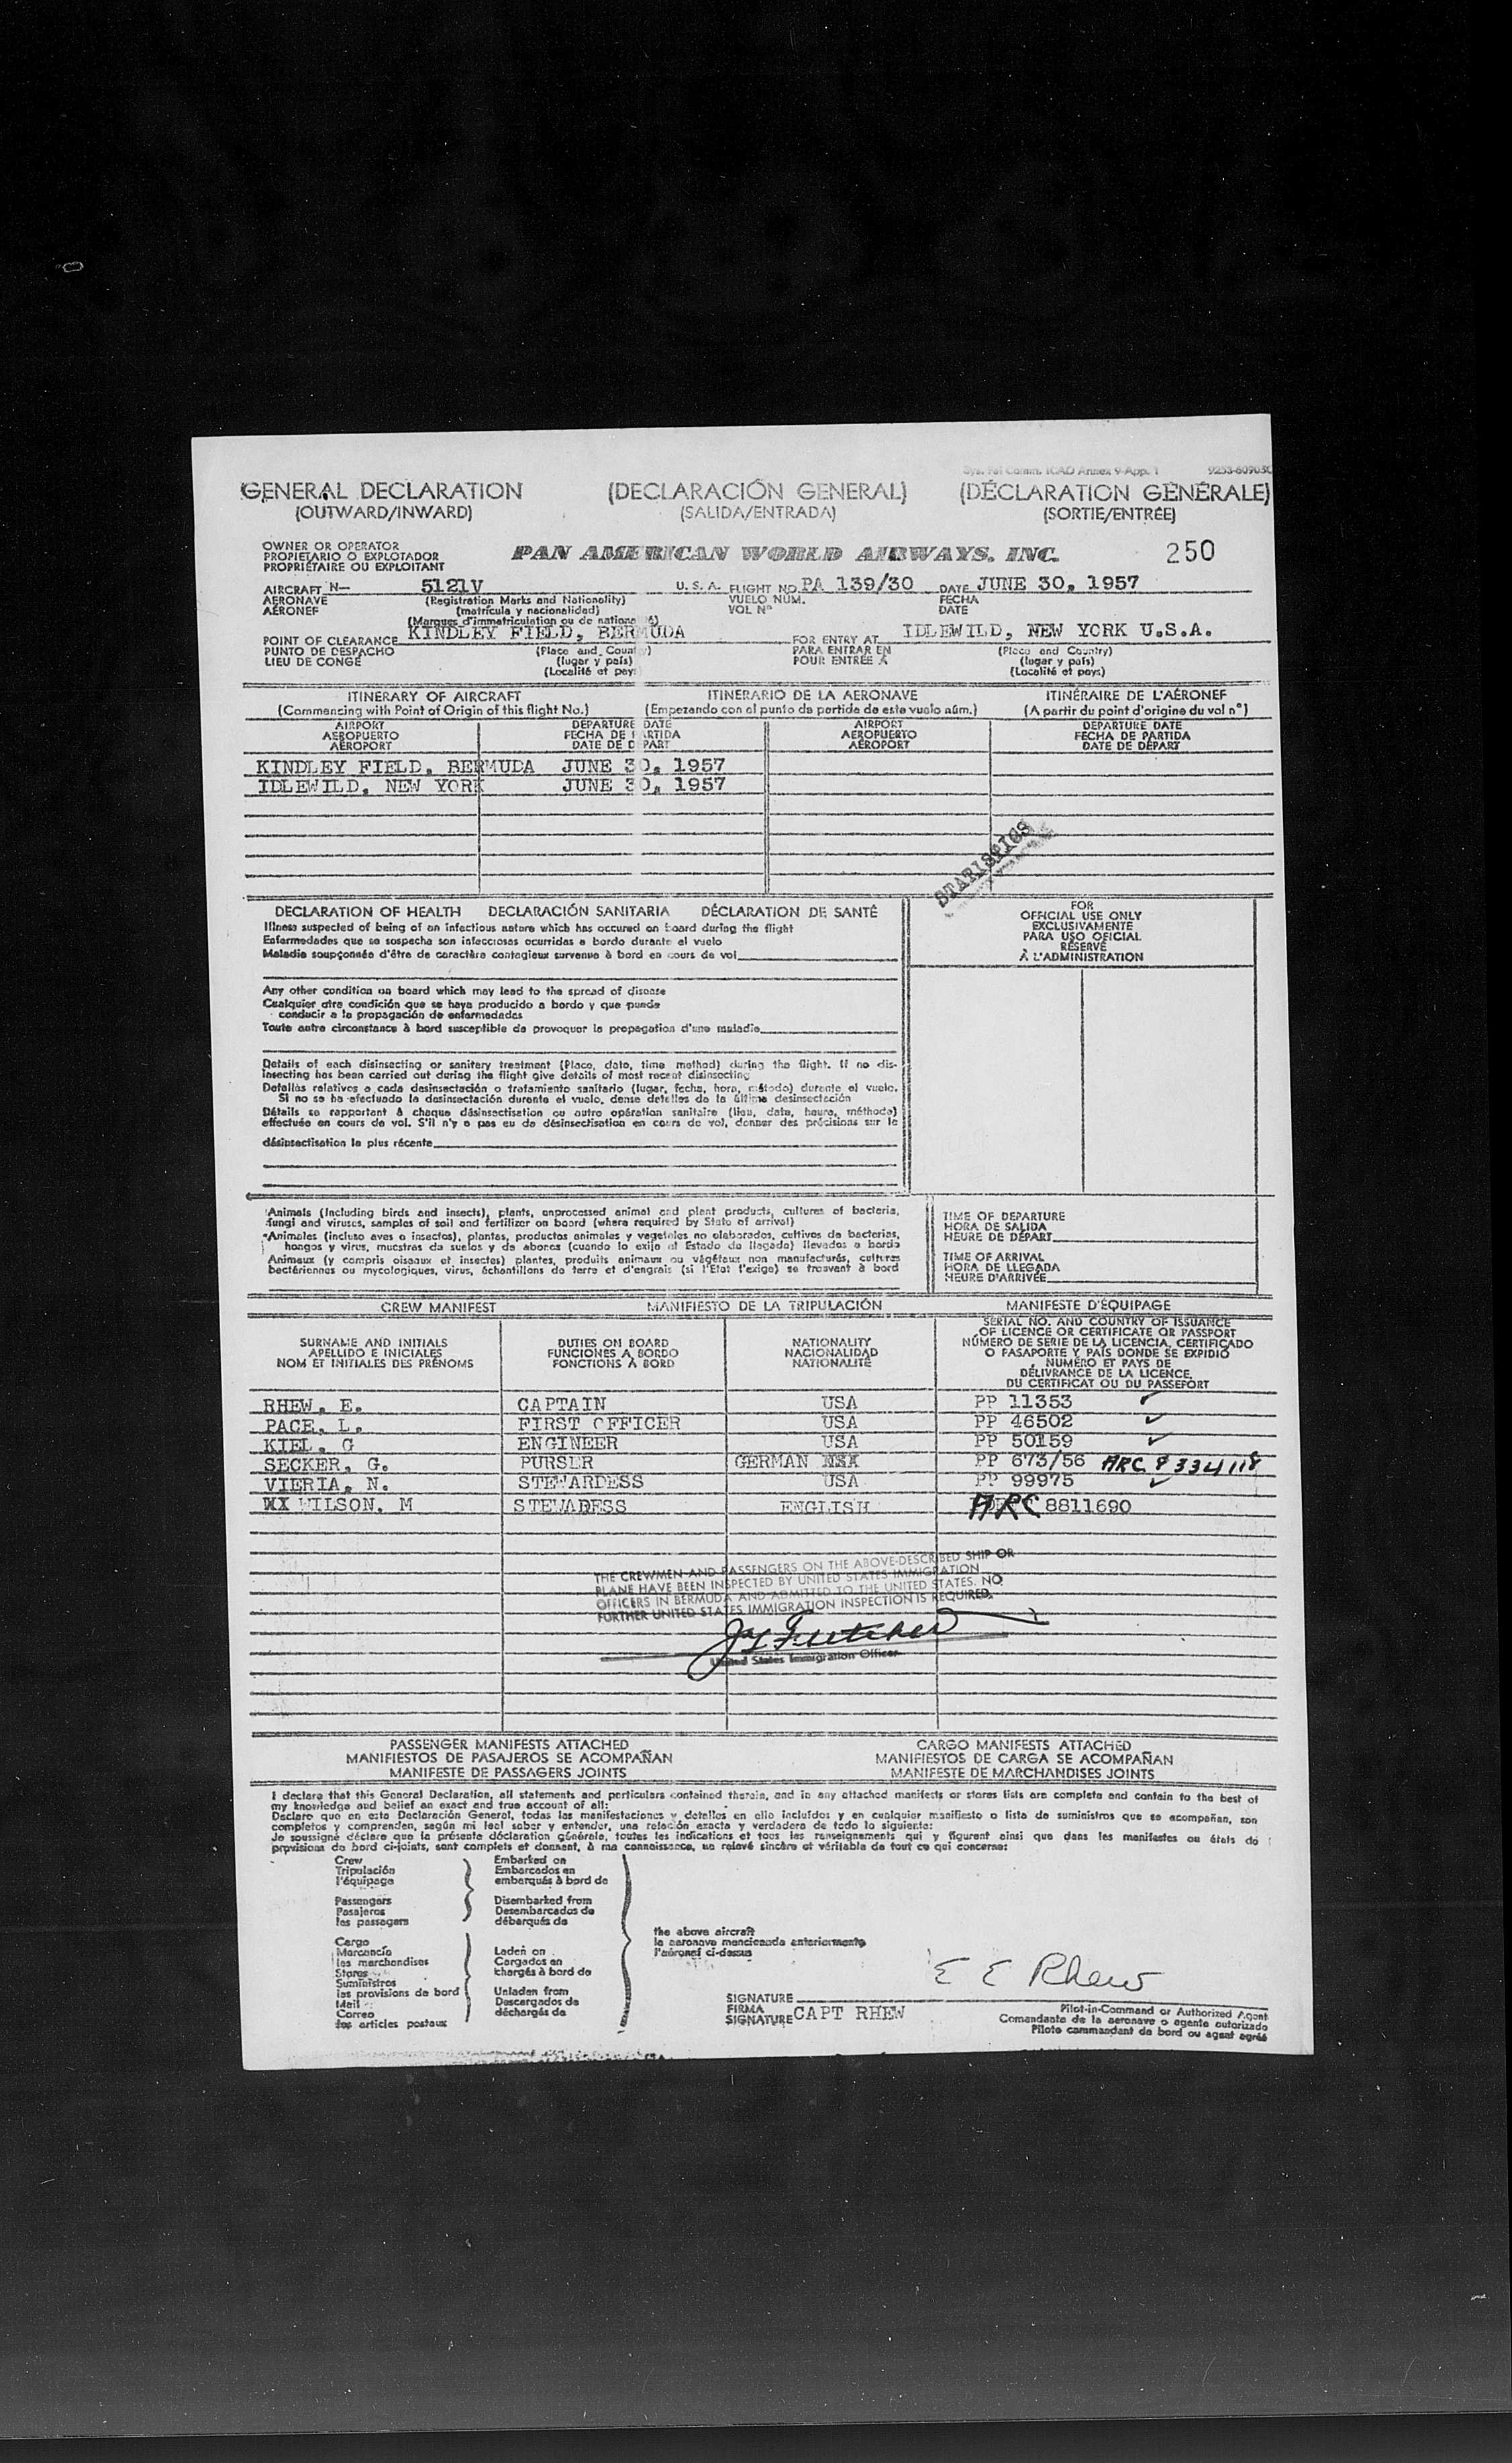 Sys. Fol Comm. ICAO Annex 9-App. 1 9253-60903C
GENERAL DECLARATION (DECLARACIÓN GENERAL) (DÉCLARATION GÉNÉRALE)
(OUTWARD/INWARD) (SALIDA/ENTRADA) (SORTIE/ENTRÉE)
OWNER OR OPERATOR
PROPIETARIO O EXPLOTADOR
PROPRIÉTAIRE OU EXPLOITANT
PAN AMERICAN WORLD AIRWAYS, INC. 250
AIRCRAFT N— 5121V U. S. A. FLIGHT NO. PA 139/30 DATE JUNE 30, 1957
AERONAVE (Registration Marks and Nationality) VUELO NÚM. FECHA
AÉRONEF (matrícula y nacionalidad) VOL Nº DATE
(Marques d'immatriculation ou de nationalité)
POINT OF CLEARANCE KINDLEY FIELD, BERMUDA FOR ENTRY AT IDLEWILD, NEW YORK U.S.A.
PUNTO DE DESPACHO (Place and Country) PARA ENTRAR EN (Place and Country)
LIEU DE CONGÉ (lugar y país) POUR ENTRÉE À (lugar y país)
(Localité et pays) (Localité et pays)
ITINERARY OF AIRCRAFT ITINERARIO DE LA AERONAVE ITINÉRAIRE DE L'AÉRONEF
(Commencing with Point of Origin of this flight No.) (Empezando con el punto de partida de este vuelo núm.) (A partir du point d'origine du vol nº)
AIRPORT DEPARTURE DATE AIRPORT DEPARTURE DATE
AEROPUERTO FECHA DE PARTIDA AEROPUERTO FECHA DE PARTIDA
AÉROPORT DATE DE DÉPART AÉROPORT DATE DE DÉPART
KINDLEY FIELD, BERMUDA JUNE 30, 1957
IDLEWILD, NEW YORK JUNE 30, 1957
STATISTICS
DECLARATION OF HEALTH DECLARACIÓN SANITARIA DÉCLARATION DE SANTÉ
Illness suspected of being of an infectious nature which has occured on board during the flight
Enfermedades que se sospecha son infecciosas ocurridas a bordo durante el vuelo
Maladie soupçonnée d'être de caractère contagieux survenue à bord en cours de vol
FOR
OFFICIAL USE ONLY
EXCLUSIVAMENTE
PARA USO OFICIAL
RÉSERVÉ
À L'ADMINISTRATION
Any other condition on board which may lead to the spread of disease
Cualquier otra condición que se haya producido a bordo y que puede
conducir a la propagación de enfermedades
Toute autre circonstance à bord susceptible de provoquer la propagation d'une maladie
Details of each disinsecting or sanitary treatment (Place, date, time method) during the flight. If no dis-
insecting has been carried out during the flight give details of most recent disinsecting
Detallás relativos a cada desinsectación o tratamiento sanitario (lugar, fecha, hora, método) durante el vuelo.
Si no se ha efectuado la desinsectación durante el vuelo, dense detalles de la última desinsectación
Détails se rapportant à chaque désinsectisation ou autre opération sanitaire (lieu, date, heure, méthode)
effectuée en cours de vol. S'il n'y a pas eu de désinsectisation en cours de vol, donner des précisions sur la
désinsectisation la plus récente
Animals (Including birds and insects), plants, unprocessed animal and plant products, cultures of bacteria,
fungi and viruses, samples of soil and fertilizer on board (where required by State of arrival)
Animales (incluso aves o insectos), plantas, productos animales y vegetales no elaborados, cultivos de bacterias,
hongos y virus, muestras de suelos y de abonos (cuando lo exija el Estado de llegada) llevados a bordo
Animaux (y compris oiseaux et insectes) plantes, produits animaux ou végétaux non manufacturés, cultures
bactériennes ou mycologiques, virus, échantillons de terre et d'engrais (si l'Etat l'exige) se trouvant à bord
TIME OF DEPARTURE
HORA DE SALIDA
HEURE DE DÉPART
TIME OF ARRIVAL
HORA DE LLEGADA
HEURE D'ARRIVÉE
CREW MANIFEST MANIFIESTO DE LA TRIPULACIÓN MANIFESTE D'ÉQUIPAGE
SURNAME AND INITIALS
APELLIDO E INICIALES
NOM ET INITIALES DES PRÉNOMS
DUTIES ON BOARD
FUNCIONES A BORDO
FONCTIONS À BORD
NATIONALITY
NACIONALIDAD
NATIONALITÉ
SERIAL NO. AND COUNTRY OF ISSUANCE
OF LICENCE OR CERTIFICATE OR PASSPORT
NÚMERO DE SERIE DE LA LICENCIA, CERTIFICADO
O PASAPORTE Y PAÍS DONDE SE EXPIDIÓ
NUMÉRO ET PAYS DE
DÉLIVRANCE DE LA LICENCE,
DU CERTIFICAT OU DU PASSEPORT
RHEW, E. CAPTAIN USA PP 11353 ✓
PACE, L. FIRST OFFICER USA PP 46502 ✓
KIEL, G ENGINEER USA PP 50159 ✓
SECKER, G. PURSER GERMAN PP 673/56 ARC 9334118
VIERIA, N. STEWARDESS USA PP 99975 ✓
WILSON, M STEWADESS ENGLISH ARC 8811690
THE CREWMEN AND PASSENGERS ON THE ABOVE-DESCRIBED SHIP OR
PLANE HAVE BEEN INSPECTED BY UNITED STATES IMMIGRATION
OFFICERS IN BERMUDA AND ADMITTED TO THE UNITED STATES. NO
FURTHER UNITED STATES IMMIGRATION INSPECTION IS REQUIRED.
Fletcher
United States Immigration Officer
PASSENGER MANIFESTS ATTACHED CARGO MANIFESTS ATTACHED
MANIFIESTOS DE PASAJEROS SE ACOMPAÑAN MANIFIESTOS DE CARGA SE ACOMPAÑAN
MANIFESTE DE PASSAGERS JOINTS MANIFESTE DE MARCHANDISES JOINTS
I declare that this General Declaration, all statements and particulars contained therein, and in any attached manifests or stores lists are complete and contain to the best of
my knowledge and belief an exact and true account of all:
Declaro que en esta Declaración General, todas las manifestaciones y detalles en ella incluídos y en cualquier manifiesto o lista de suministros que se acompañan, son
completos y comprenden, según mi leal saber y entender, una relación exacta y verdadera de todo lo siguiente:
Je soussigné déclare que la présente déclaration générale, toutes les indications et tous les renseignements qui y figurent ainsi que dans les manifestes ou états de
provisions de bord ci-joints, sont complets et donnent, à ma connaissance, un relevé sincère et véritable de tout ce qui concerne:
Crew
Tripulación
l'équipage
Passengers
Pasajeros
les passagers
Cargo
Mercancía
les marchandises
Stores
Suministros
les provisions de bord
Mail
Correo
les articles postaux
Embarked on
Embarcados en
embarqués à bord de
Disembarked from
Desembarcados de
débarqués de
Laden on
Cargados en
chargés à bord de
Unladen from
Descargados de
déchargés de
the above aircraft
la aeronave mencionada anteriormente
l'aéronef ci-dessus
E E Rhew
SIGNATURE
FIRMA
SIGNATURE CAPT RHEW
Pilot-in-Command or Authorized Agent
Comandante de la aeronave o agente autorizado
Pilote commandant de bord ou agent agréé